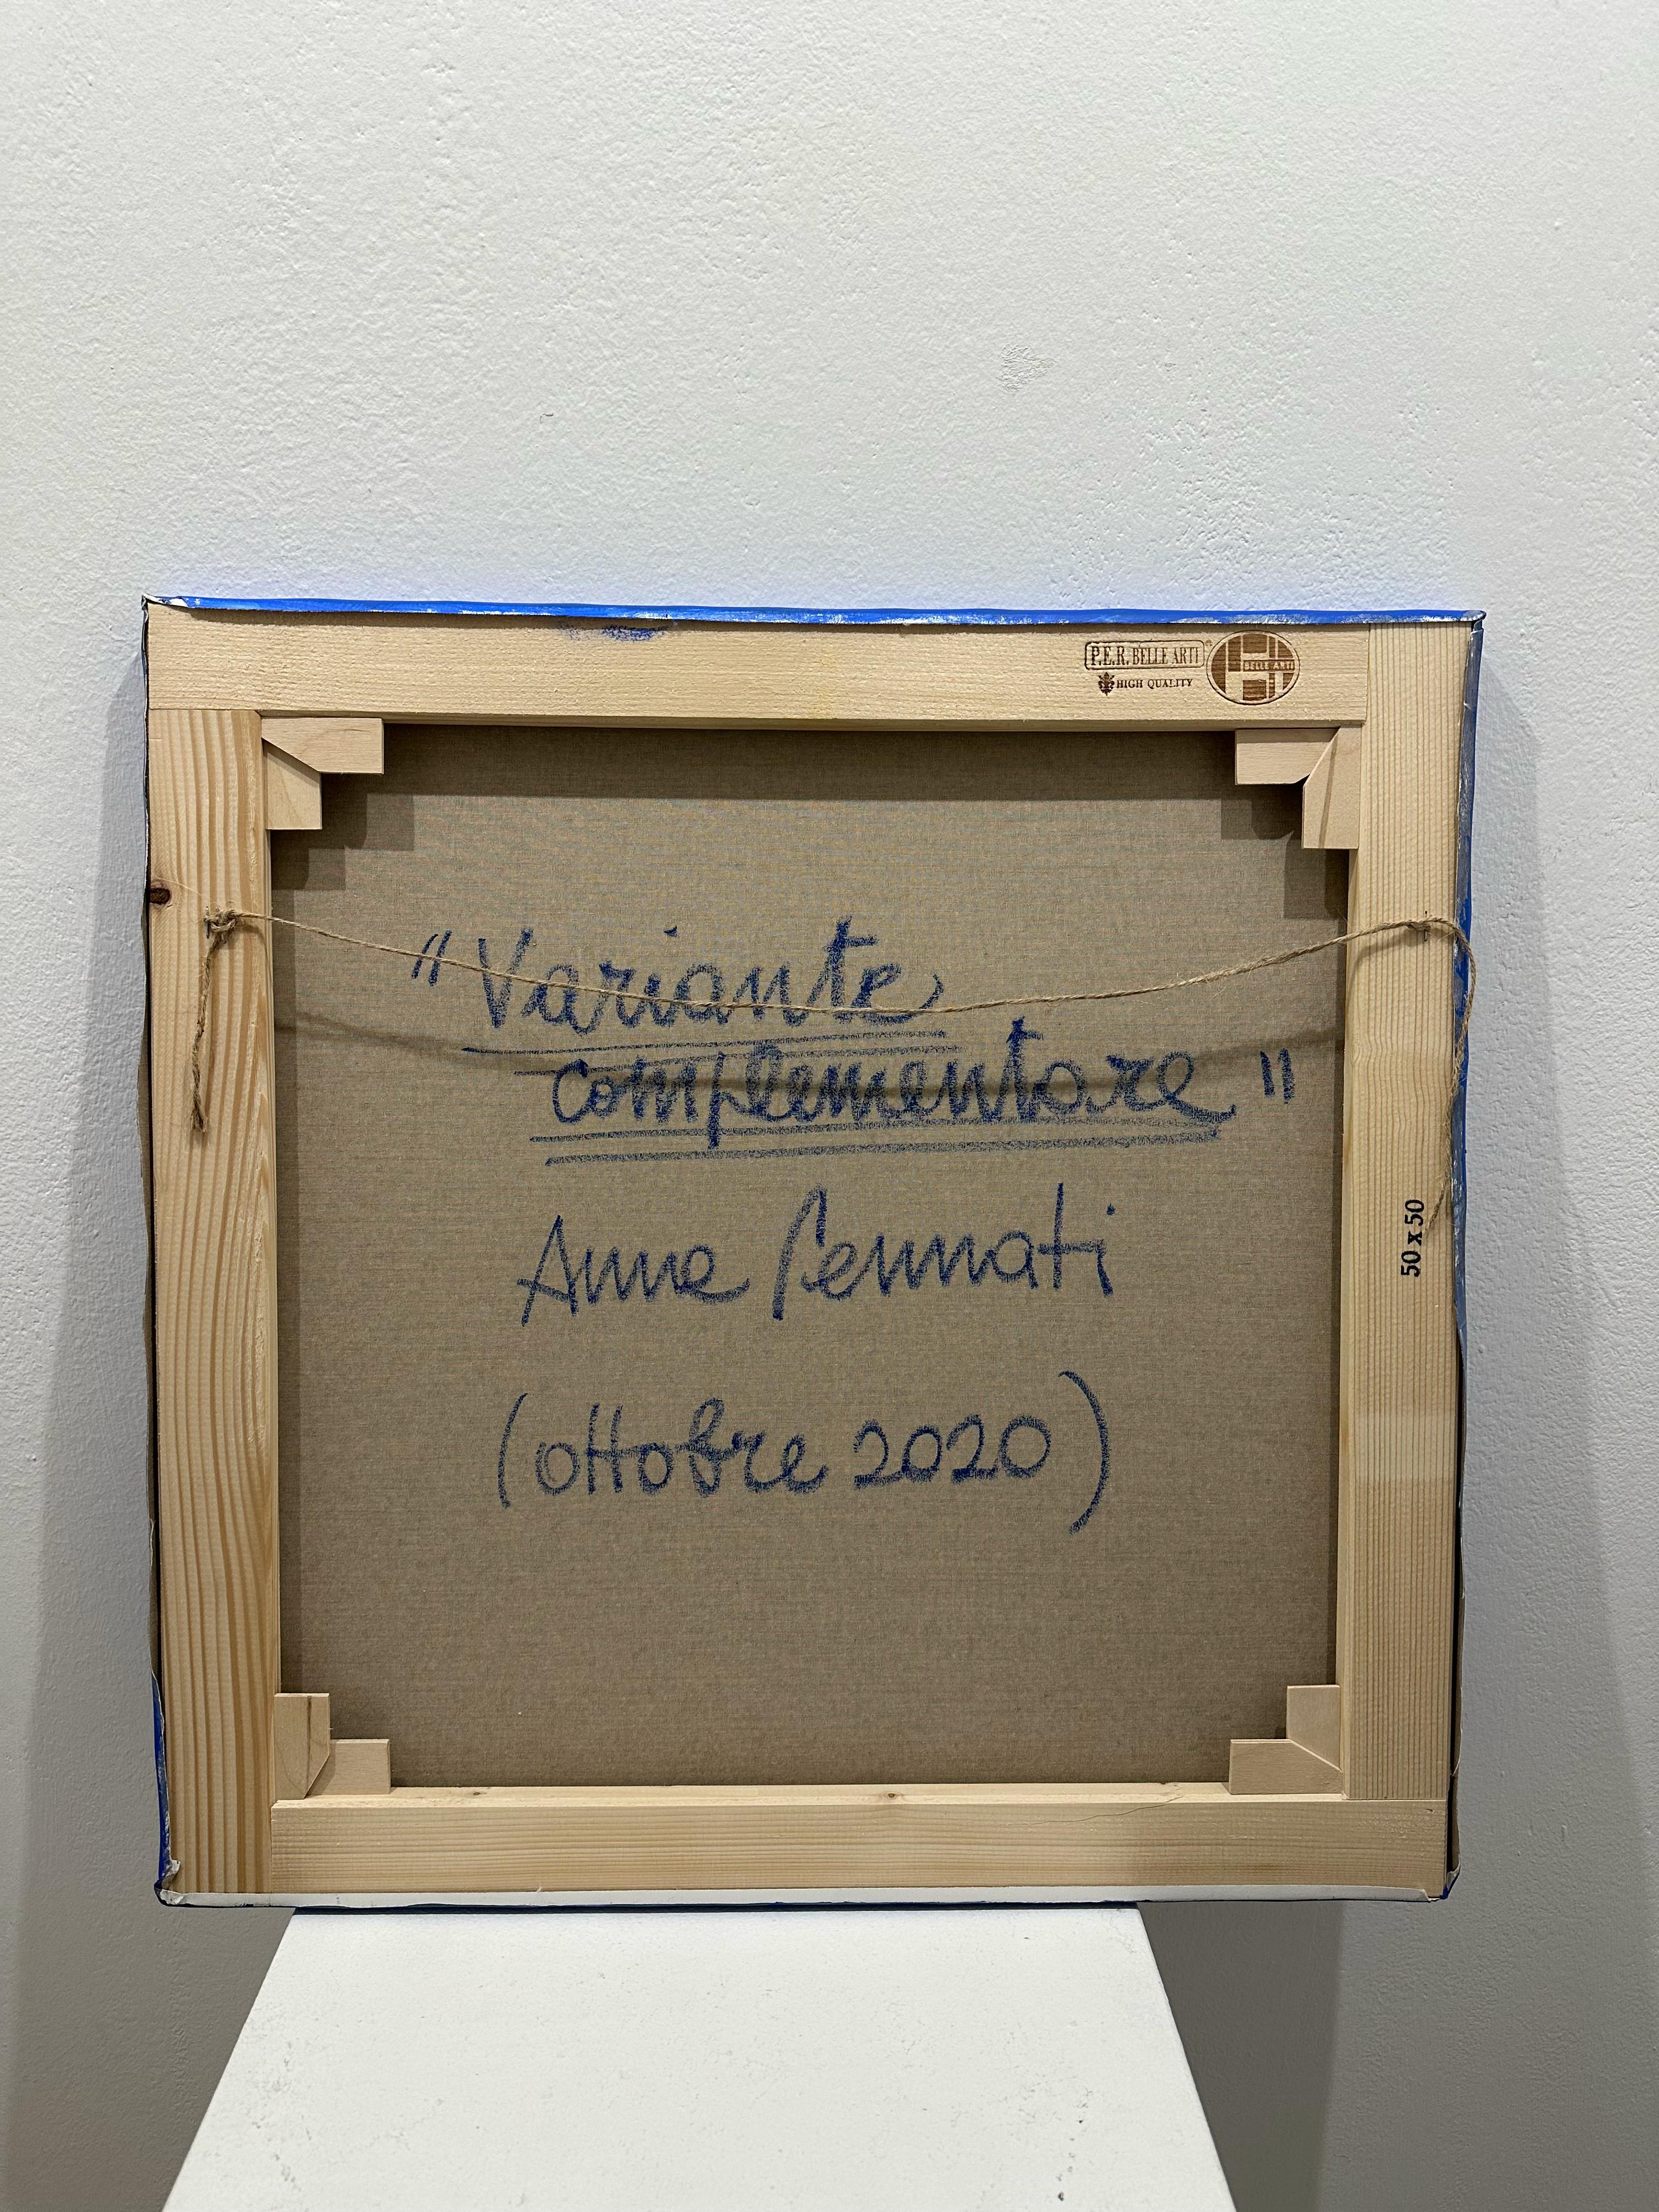 P.E.R. BELLE ARTI
HIGH QUALITY
BELLE ARTI
"Variante
complementare"
Anna Pennati
(ottobre 2020)
50 x 50